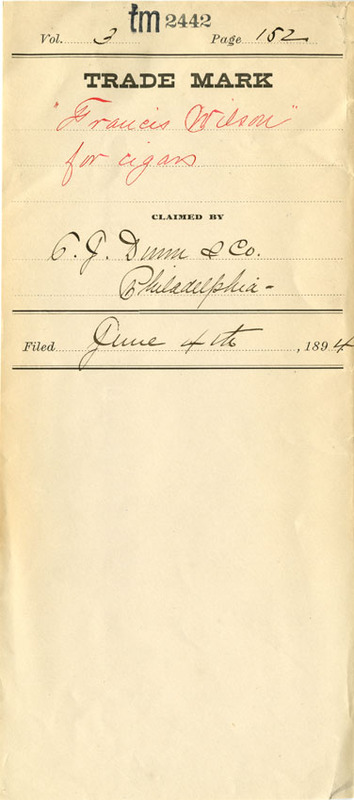 tm 2442
Vol. 3 Page 152
TRADE MARK
"Francis Wilson"
for cigars
CLAIMED BY
T. J. Dunn & Co.
Philadelphia-
Filed June 4th, 1894